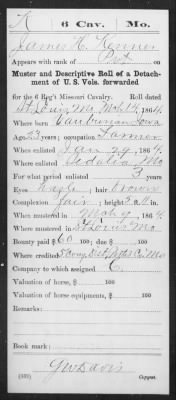 K 6 Cav. Mo.
James H. Kenner
Appears with rank of Pvt. on
Muster and Descriptive Roll of a Detach-
ment of U. S. Vols. forwarded
for the 6 Reg't Missouri Cavalry. Roll dated
St Louis Mo Mch 14, 1864.
Where born Van Buren Iowa
Age 23 years; occupation Farmer
When enlisted Jan 29, 1864.
Where enlisted Sedalia Mo
For what period enlisted 3 years
Eyes Hazle; hair Brown
Complexion fair; height ft. in.
When mustered in Mch 9, 1864.
Where mustered in St Louis Mo
Bounty paid $60 100; due $ 100
Where credited 5 Cong Dist, Mo
Company to which assigned C.
Valuation of horse, $ 100
Valuation of horse equipments, $ 100
Remarks:
Book mark:
G W Davis
Copyist.